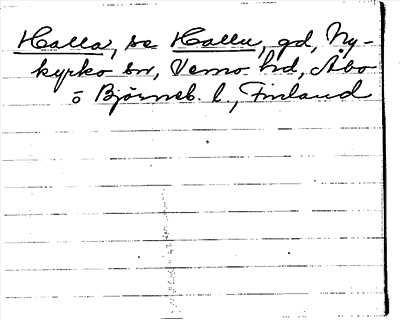 Halla, se Hallu, gd, Ny-
kyrko sn, Vemo hd, Åbo
o Björneb. l., Finland